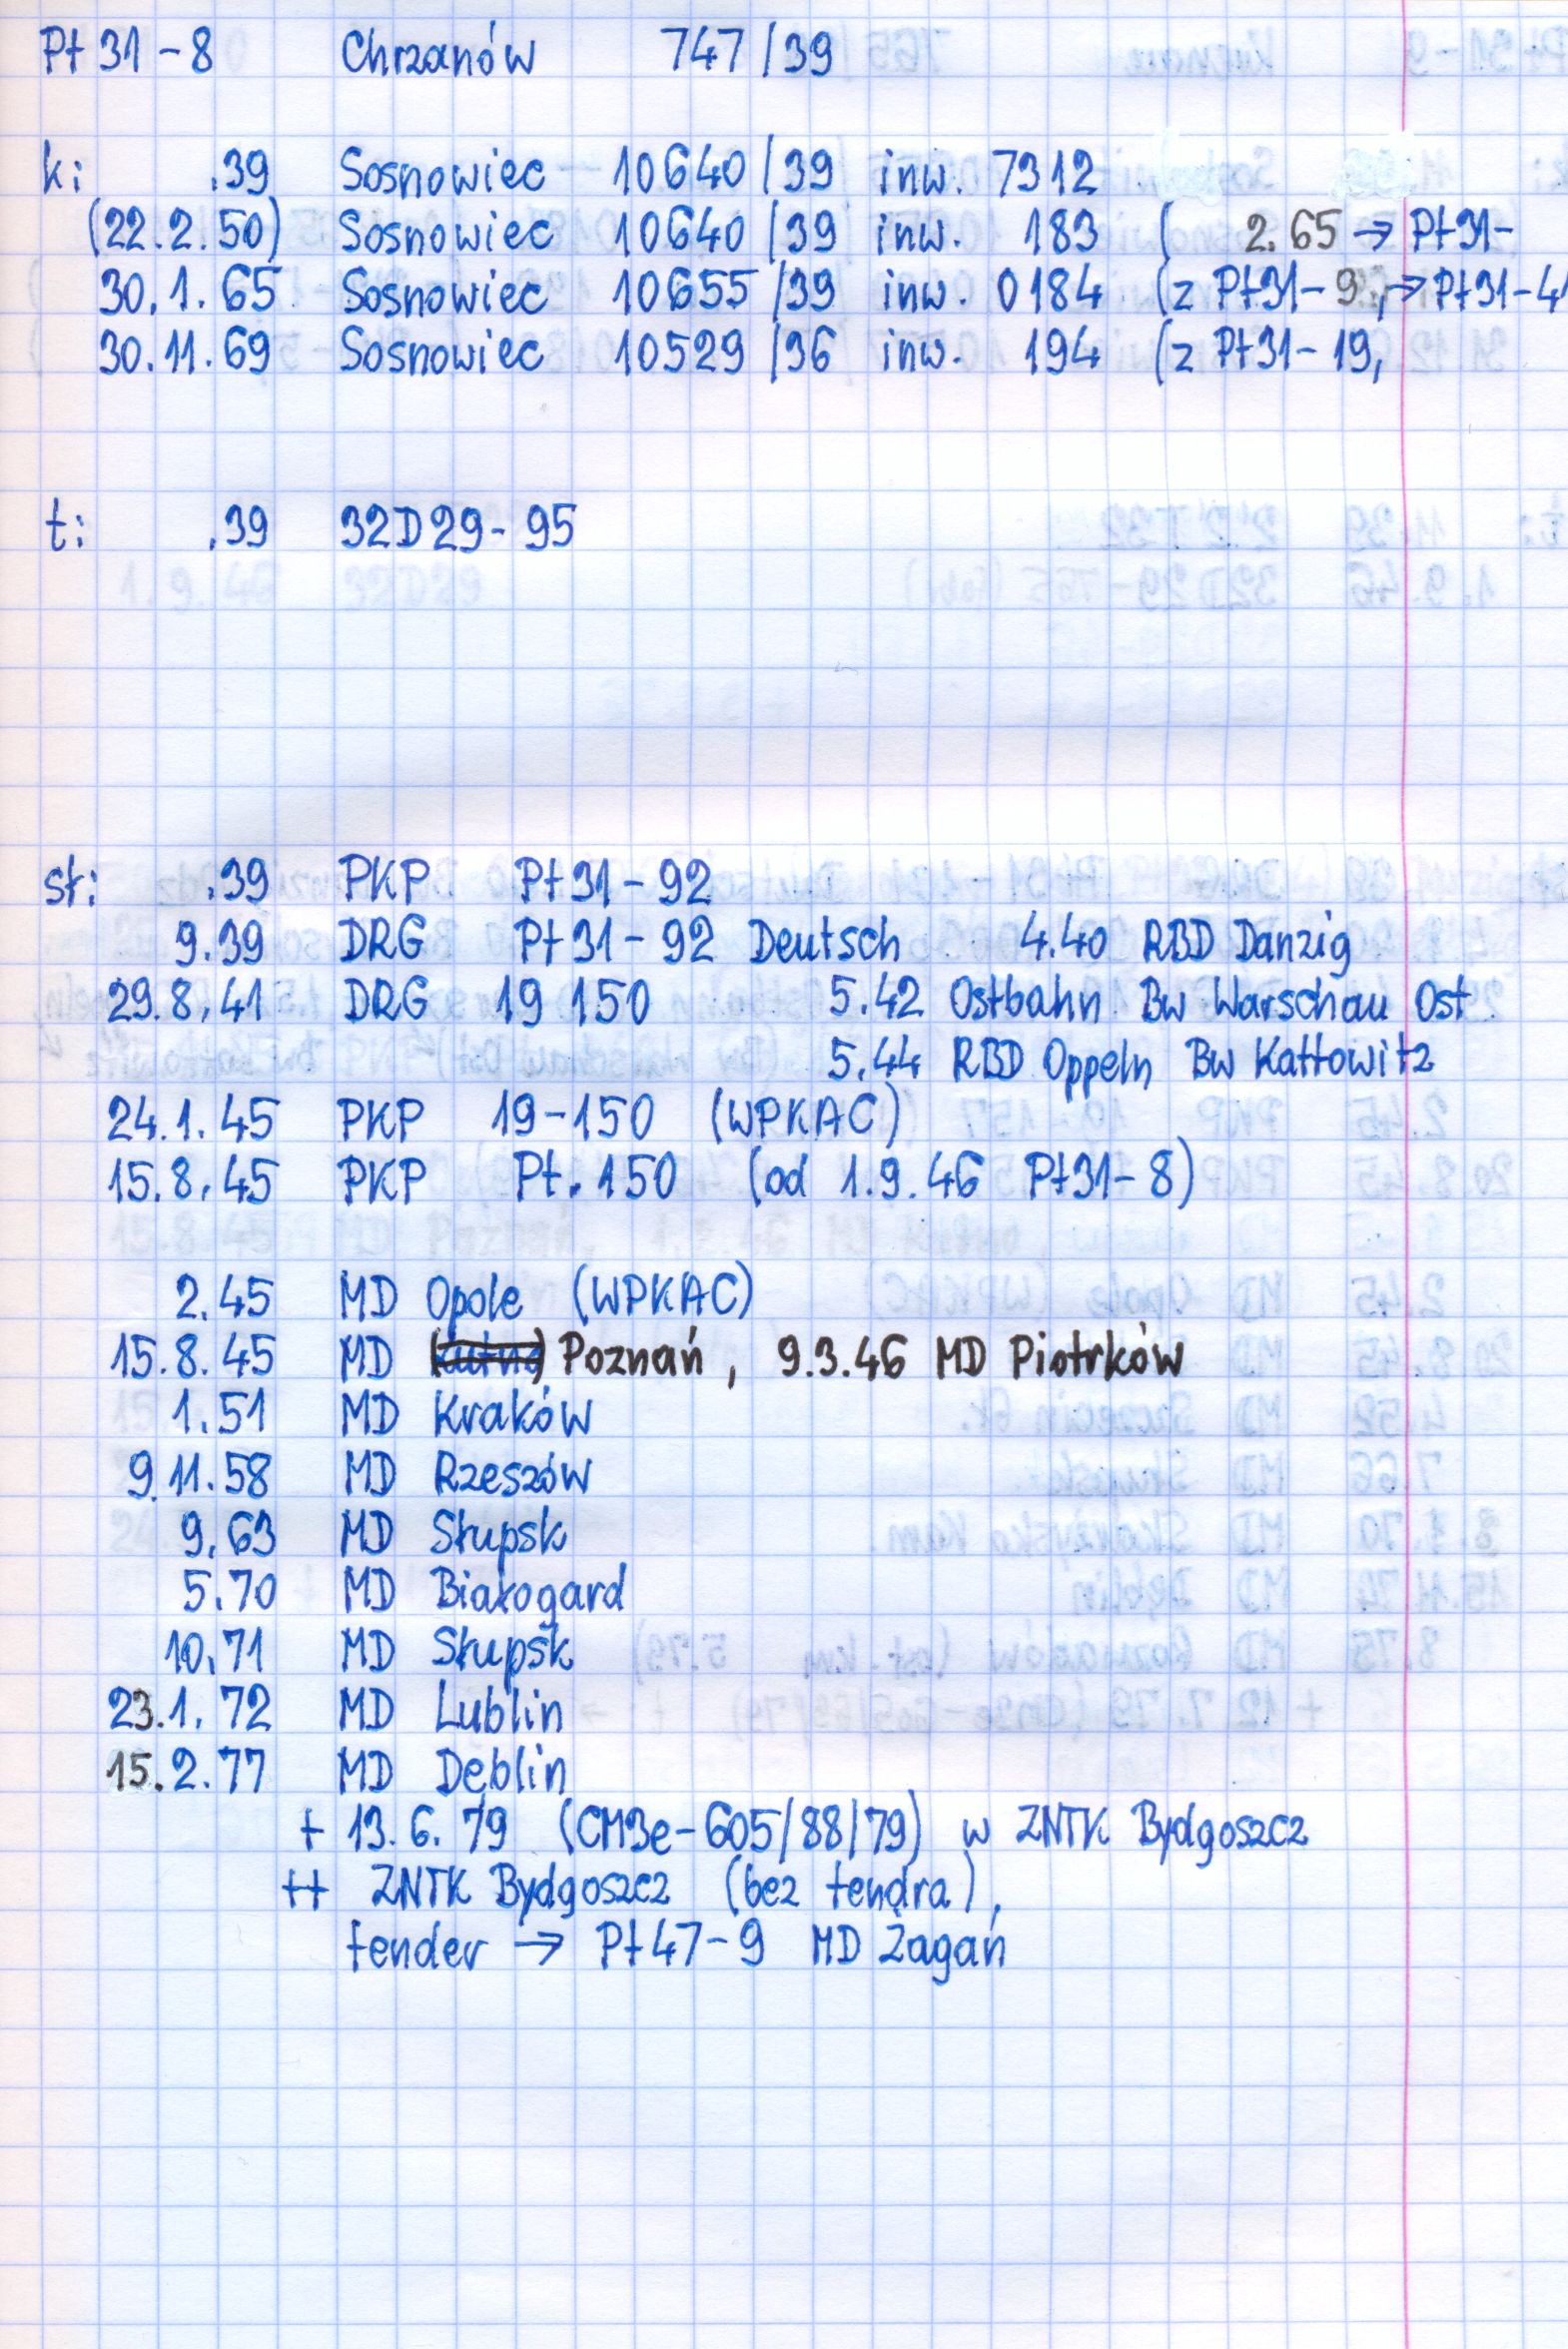 Pt 31-8 Chrzanów 747/39
k: .39 Sosnowiec 10640/39 inw. 7312
(22.2.50) Sosnowiec 10640/39 inw. 183 ( 2.65 → Pt31-
30.1.65 Sosnowiec 10655/39 inw. 0184 (z Pt31-9, → Pt31-4
30.11.69 Sosnowiec 10529/36 inw. 194 (z Pt31-19,
t: .39 32D29-95
sł: .39 PKP Pt31-92
9.39 DRG Pt31-92 Deutsch 4.40 RBD Danzig
29.8.41 DRG 19 150 5.42 Ostbahn Bw Warschau Ost
5.44 RBD Oppeln Bw Kattowitz
24.1.45 PKP 19-150 (WPKAC)
15.8.45 PKP Pt.150 (od 1.9.46 Pt31-8)
2.45 MD Opole (WPKAC)
15.8.45 MD Poznań, 9.3.46 MD Piotrków
1.51 MD Kraków
9.11.58 MD Rzeszów
9.63 MD Słupsk
5.70 MD Białogard
10.71 MD Słupsk
23.1.72 MD Lublin
15.2.77 MD Dęblin
+ 13.6.79 (CM3e-605/88/79) w ZNTK Bydgoszcz
++ ZNTK Bydgoszcz (bez tendra),
tender → Pt47-9 MD Żagań